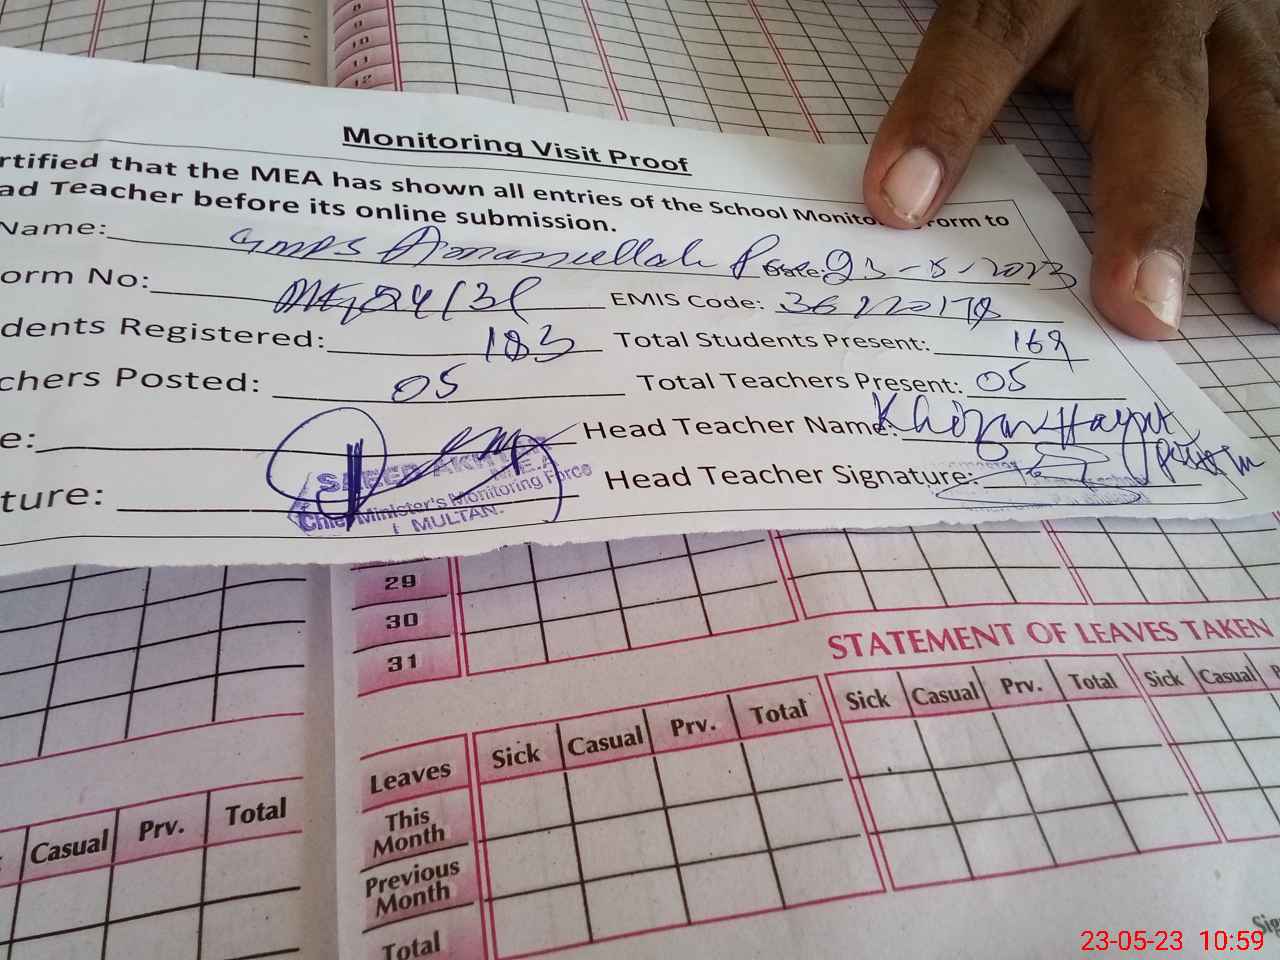 8
9
10
11
12
Monitoring Visit Proof
rtified that the MEA has shown all entries of the School Monito Form to
ad Teacher before its online submission.
Name: GMPS Amanullah Date: 23-5-2023
orm No: EMIS Code:
dents Registered: 183 Total Students Present: 169
chers Posted: 05 Total Teachers Present: 05
e: Head Teacher Name: Khizar Hayat
ture: Head Teacher Signature:
SAEED AKHTAR
M.E.A
Chief Minister's Monitoring Force
MULTAN.
29
30
31
STATEMENT OF LEAVES TAKEN
Leaves Sick Casual Prv. Total Sick Casual Prv. Total Sick Casual
This Month
Previous Month
Total
Casual Prv. Total
23-05-23 10:59